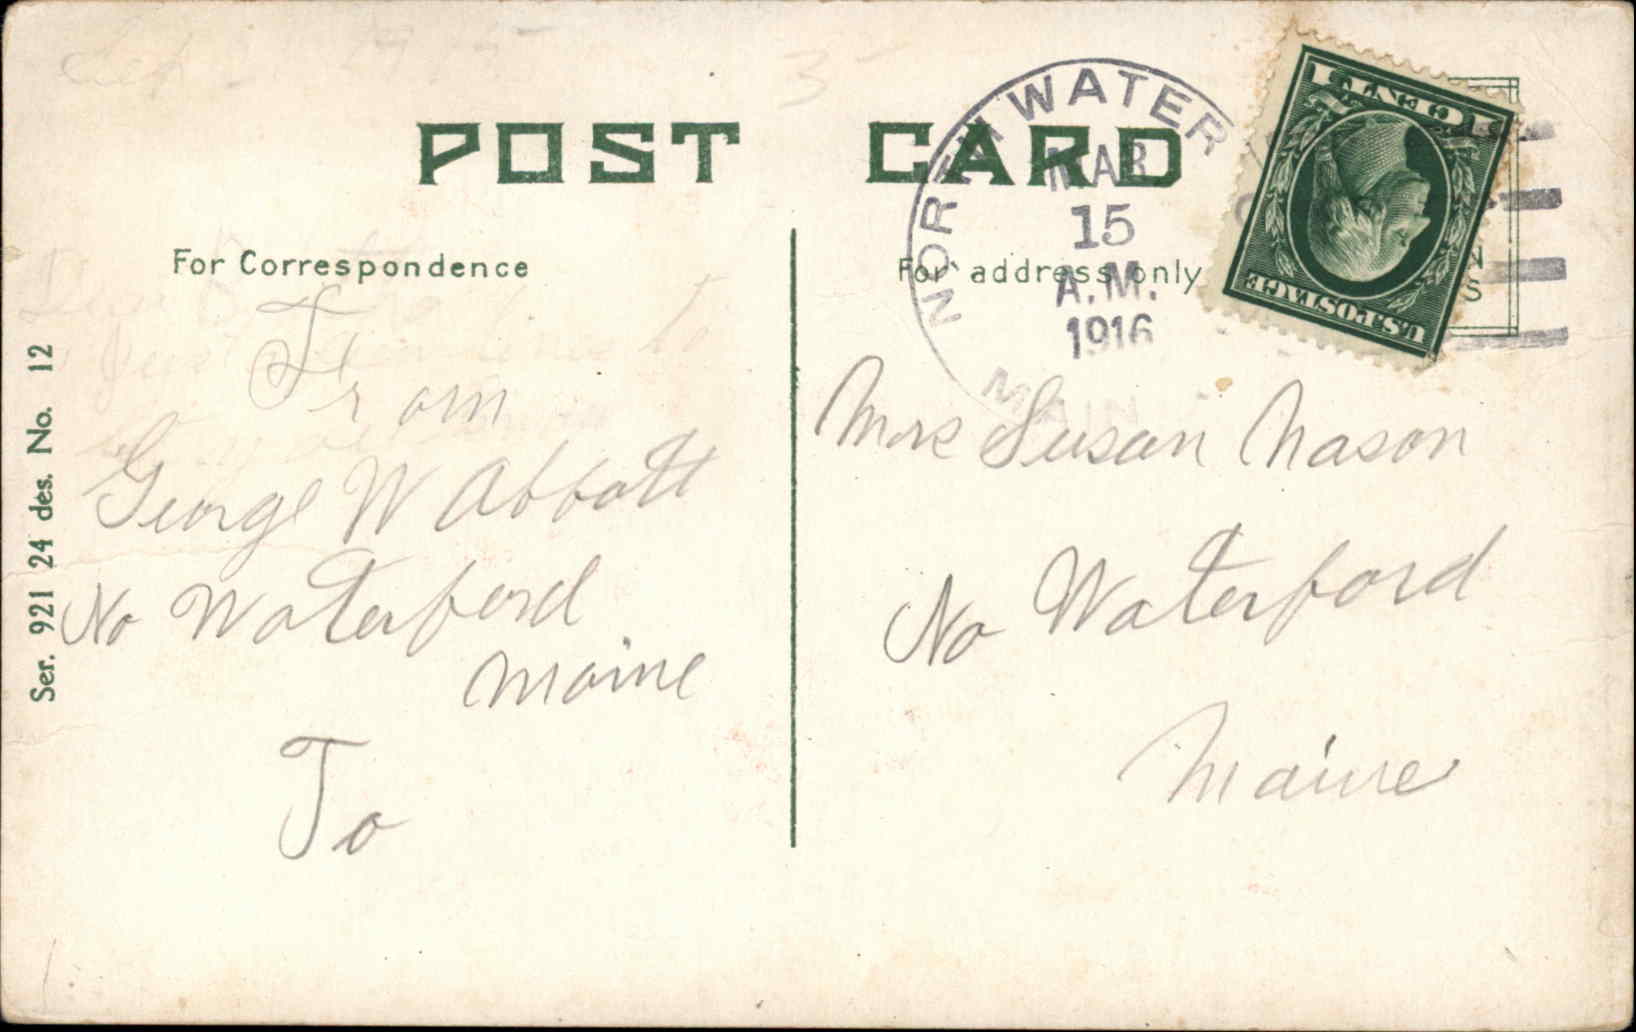 POST CARD
For Correspondence
For address only
NORTH WATER
MAR
15
A.M.
1916
MAIN
1 CENT 1
U.S. POSTAGE
N
S
From
George W Abbott
No Waterford
Maine
To
Mrs Susan Nason
No Waterford
Maine
Ser. 921 24 des. No. 12